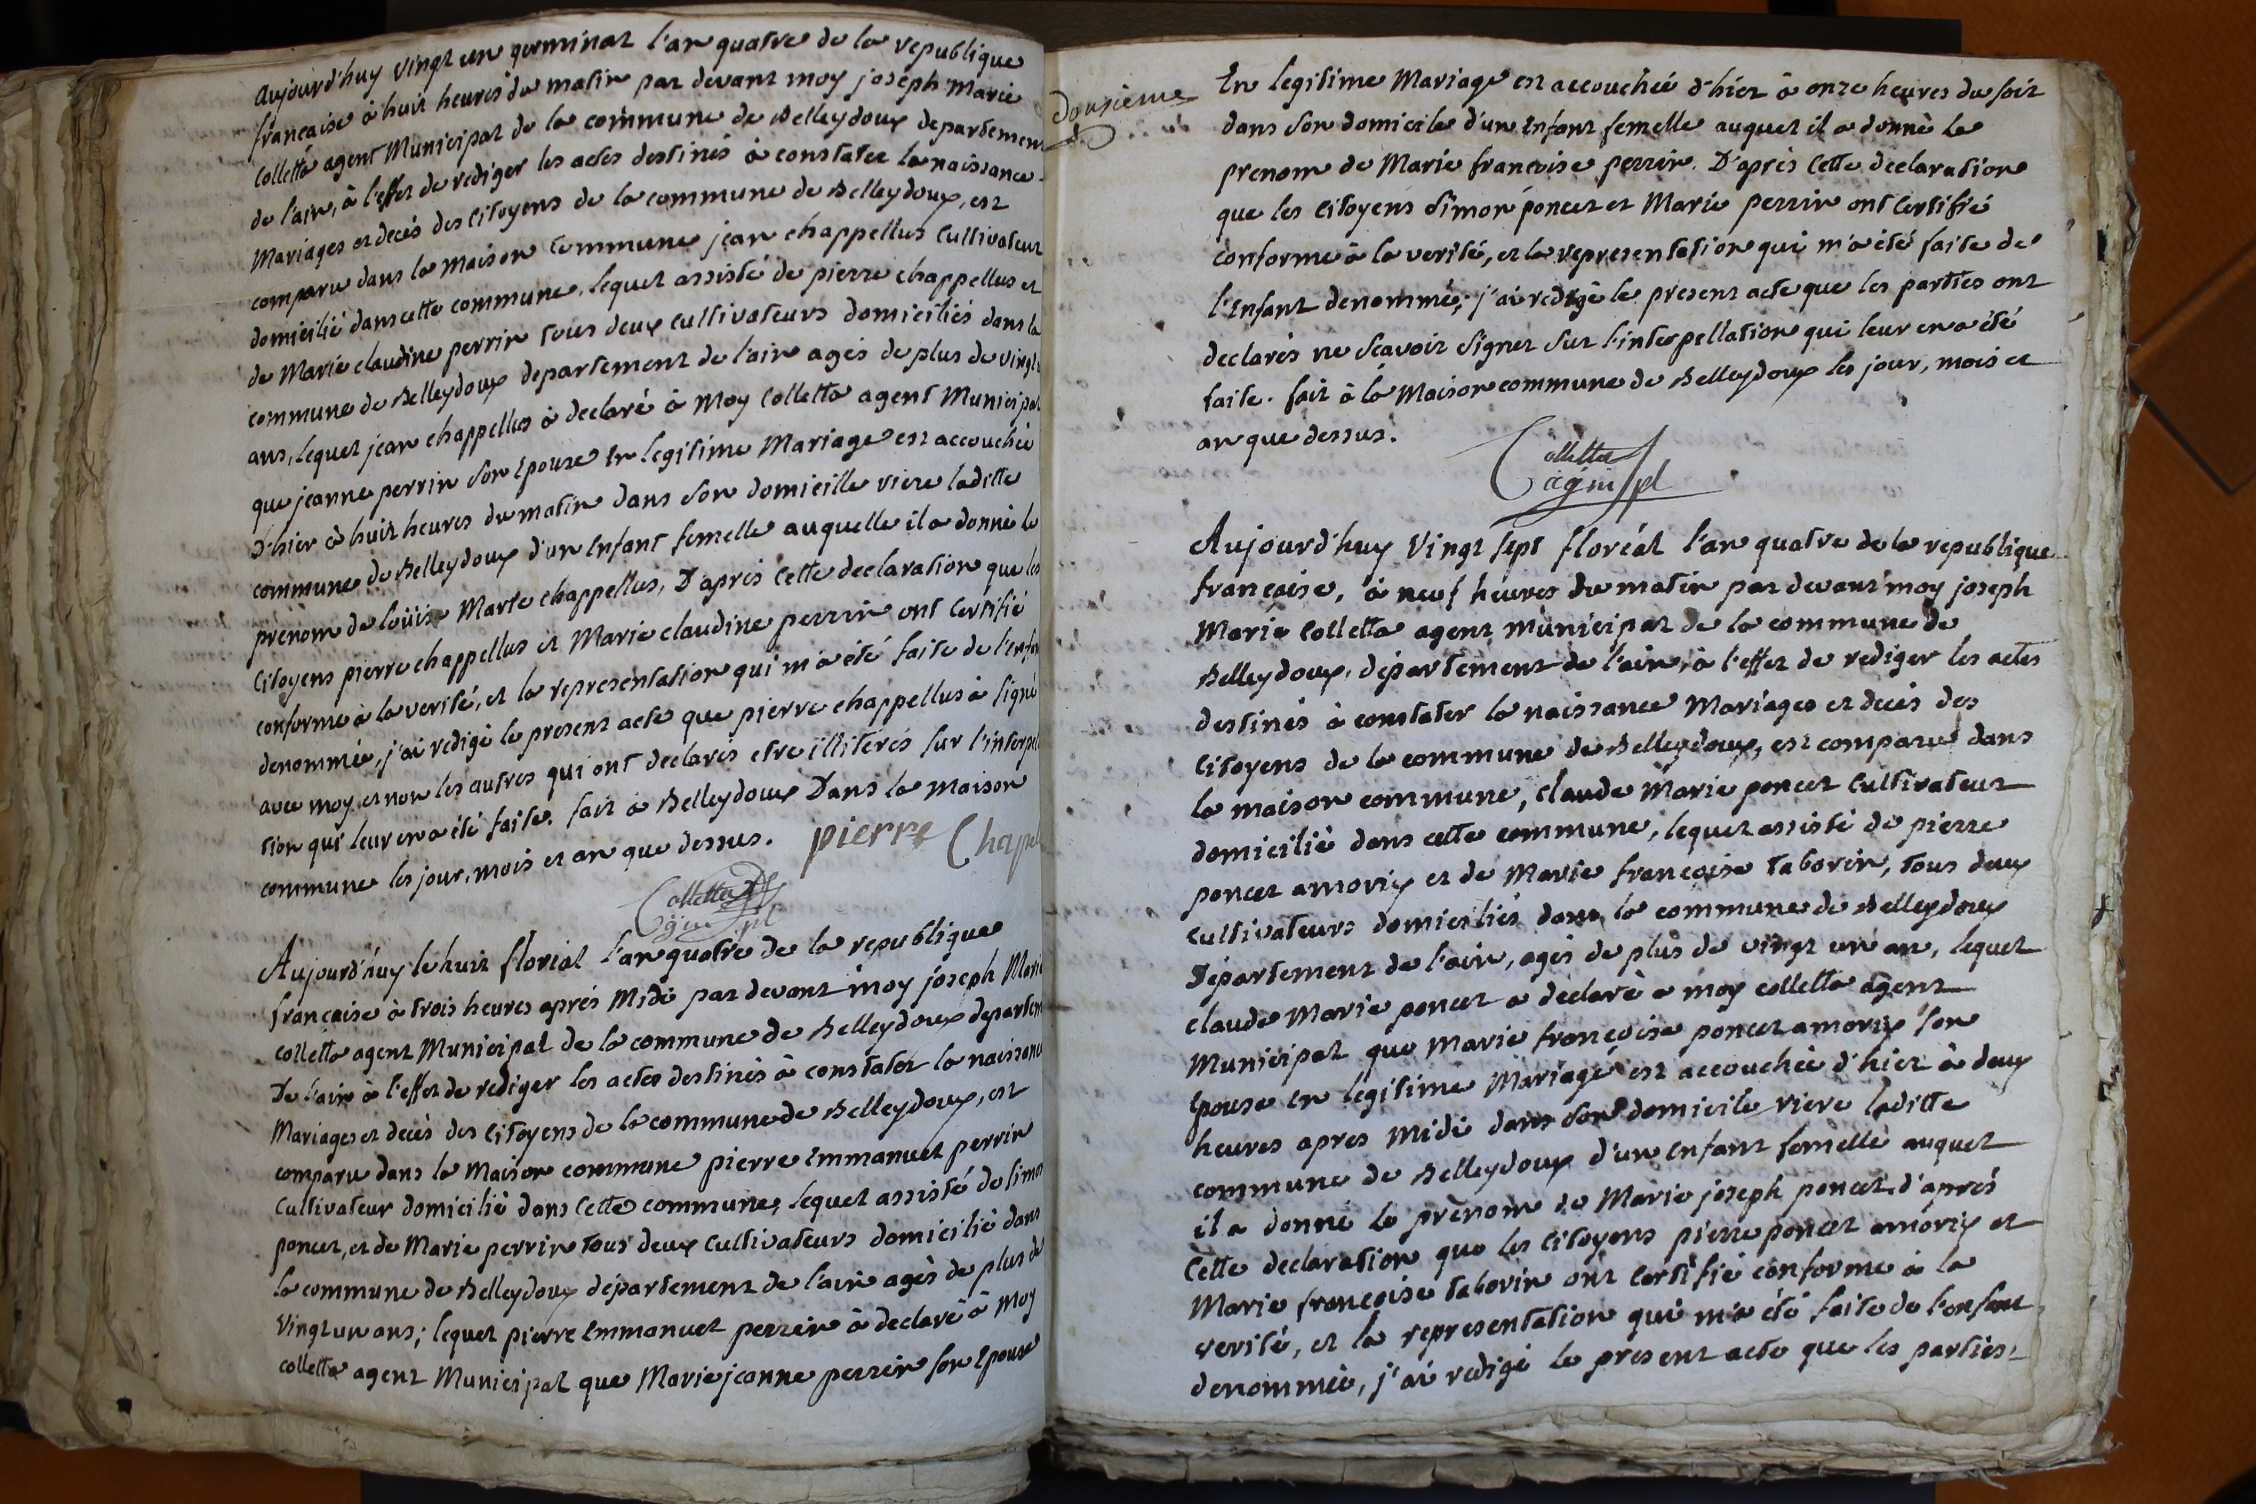 aujourd'huy vingt un germinal l'an quatre de la republique
francaise à huit heures du matin par devant moy joseph Marie
Colletta agent Municipal de la commune de Belleydoux departemen
de l'ain, à l'effet de rediger les actes destinés à constater la naissance
Mariages et decés des Citoyens de la commune de Belleydoux, est
comparu dans la maison Commune jean chappellus Cultivateur
domicilié dans cette commune, lequel assisté de pierre chappellus et
de Marie claudine perrin tous deux Cultivateurs domiciliés dans la
commune de Belleydoux departement de l'ain agés de plus de vingt
ans, lequel jean chappellus à declaré à Moy Colletta agent Municipal
que jeanne perrin son Epouse En legitime Mariage est accouchée
d'hier à huit heures du matin dans son domicille viere laditte
commune de Belleydoux d'un Enfant femelle auquelle il a donné le
prenom de Louise Marie chappellus, D'aprés Cette declaration que les
Citoyens pierre chappellus et Marie claudine perrin ont Certifié
conforme à la verité, et la representation qui m'a été faite de l'enfan
denommée, j'ai redigé le present acte que pierre chappellus à signé
avec moy et non les autres qui ont declarés etre illiterés sur l'interpel
tion qui leur en a été faite. fait à Belleydoux Dans la maison
commune les jour, mois et an que dessus. pierre Chapel
Colletta
agent pl
Aujourd'huy le huit florial l'an quatre de la republique
francaise à trois heures aprés Midi par devant moy joseph Marie
colletta agent Municipal de la commune de Belleydoux departem
De l'ain à l'effet de rediger les actes destinés à constater la naissance
Mariages et decés des Citoyens de la commune de Belleydoux, est
comparu dans la Maison commune pierre Emmanuel perrin
Cultivateur domicilié dans Cette commune, lequel assisté de simon
poncet, et de Marie perrin tous deux Cultivateurs domicilié dans
la commune de Belleydoux département de l'ain agés de plus de
vingt un ans; lequel pierre Emmanuel perrin à declaré à Moy
colletta agent Municipal que Marie jeanne perrin son Epouse
douzieme
En legitime Mariage est accouchée d'hier à onze heures du soir
dans son domicile d'un Enfant femelle auquel il a donné le
prenom de Marie francoise perrin. D'aprés Cette declaration
que les Citoyens simon poncet et Marie perrin ont Certifié
conforme à la verité, et la representation qui m'a été faite de
l'Enfant denommée; j'ai redigé le present acte que les parties ont
declarés ne scavoir signer sur l'interpellation qui leur en a été
faite. fait à la Maison commune de Belleydoux les jour, mois et
an que dessus.
Colletta
agent pl
Aujourd'huy Vingt sept floréal l'an quatre de la republique
francaise, à neuf heures du matin par devant moy joseph
Marie Colletta agent Municipal de la commune de
Belleydoux, département de l'ain, à l'effet de rediger les actes
destinés à constater la naissance Mariages et decés des
Citoyens de la commune de Belleydoux, est comparu dans
la maison commune, claude Marie poncet Cultivateur
domicilié dans cette commune, lequel assisté de pierre
poncet amorix et de Marie francoise taborin, tous deux
cultivateurs domiciliés dans la commune de Belleydoux
Département de l'ain, agés de plus de vingt un an, lequel
claude Marie poncet a declaré a moy colletta agent
Municipal que Marie francoise poncet amorix son
Epouse en legitime Mariage est accouchée d'hier à deux
heures apres Midi dans son domicile viere laditte
commune de Belleydoux d'un enfant femelle auquel
il a donné le prénom de Marie joseph poncet. d'aprés
Cette declaration que les Citoyens pierre poncet amorix et
Marie francoise taborin ont certifié conforme à la
verité, et la representation qui m'a été faite de l'enfant
denommée, j'ai redigé le present acte que les parties